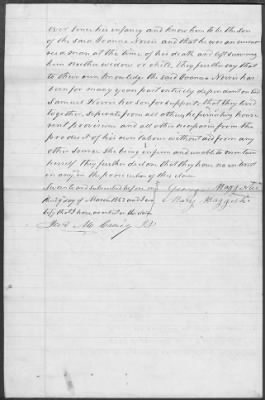 ever since his infancy and know him to be the son
of the said Joanna Norris and that he was an unmar
ried man at the time of his death and left surviving
him neither widow or child, they further say that
to their own knowledge the said Joanna Norris has
been for many years past entirely dependent on the
Samuel Norris her son for support that they lived
together, separate from all others he furnishing house
rent provisions and all other necessaries from the
product of his own labour without aid from any
other source she being infirm and unable to maintain
herself They further declare that they have no interest
in any in the prosecution of this claim
Sworn to and subscribed before me George
this day of March 1863 and I cer Mary
tify that I have no interest in the claim
Craig J.P.